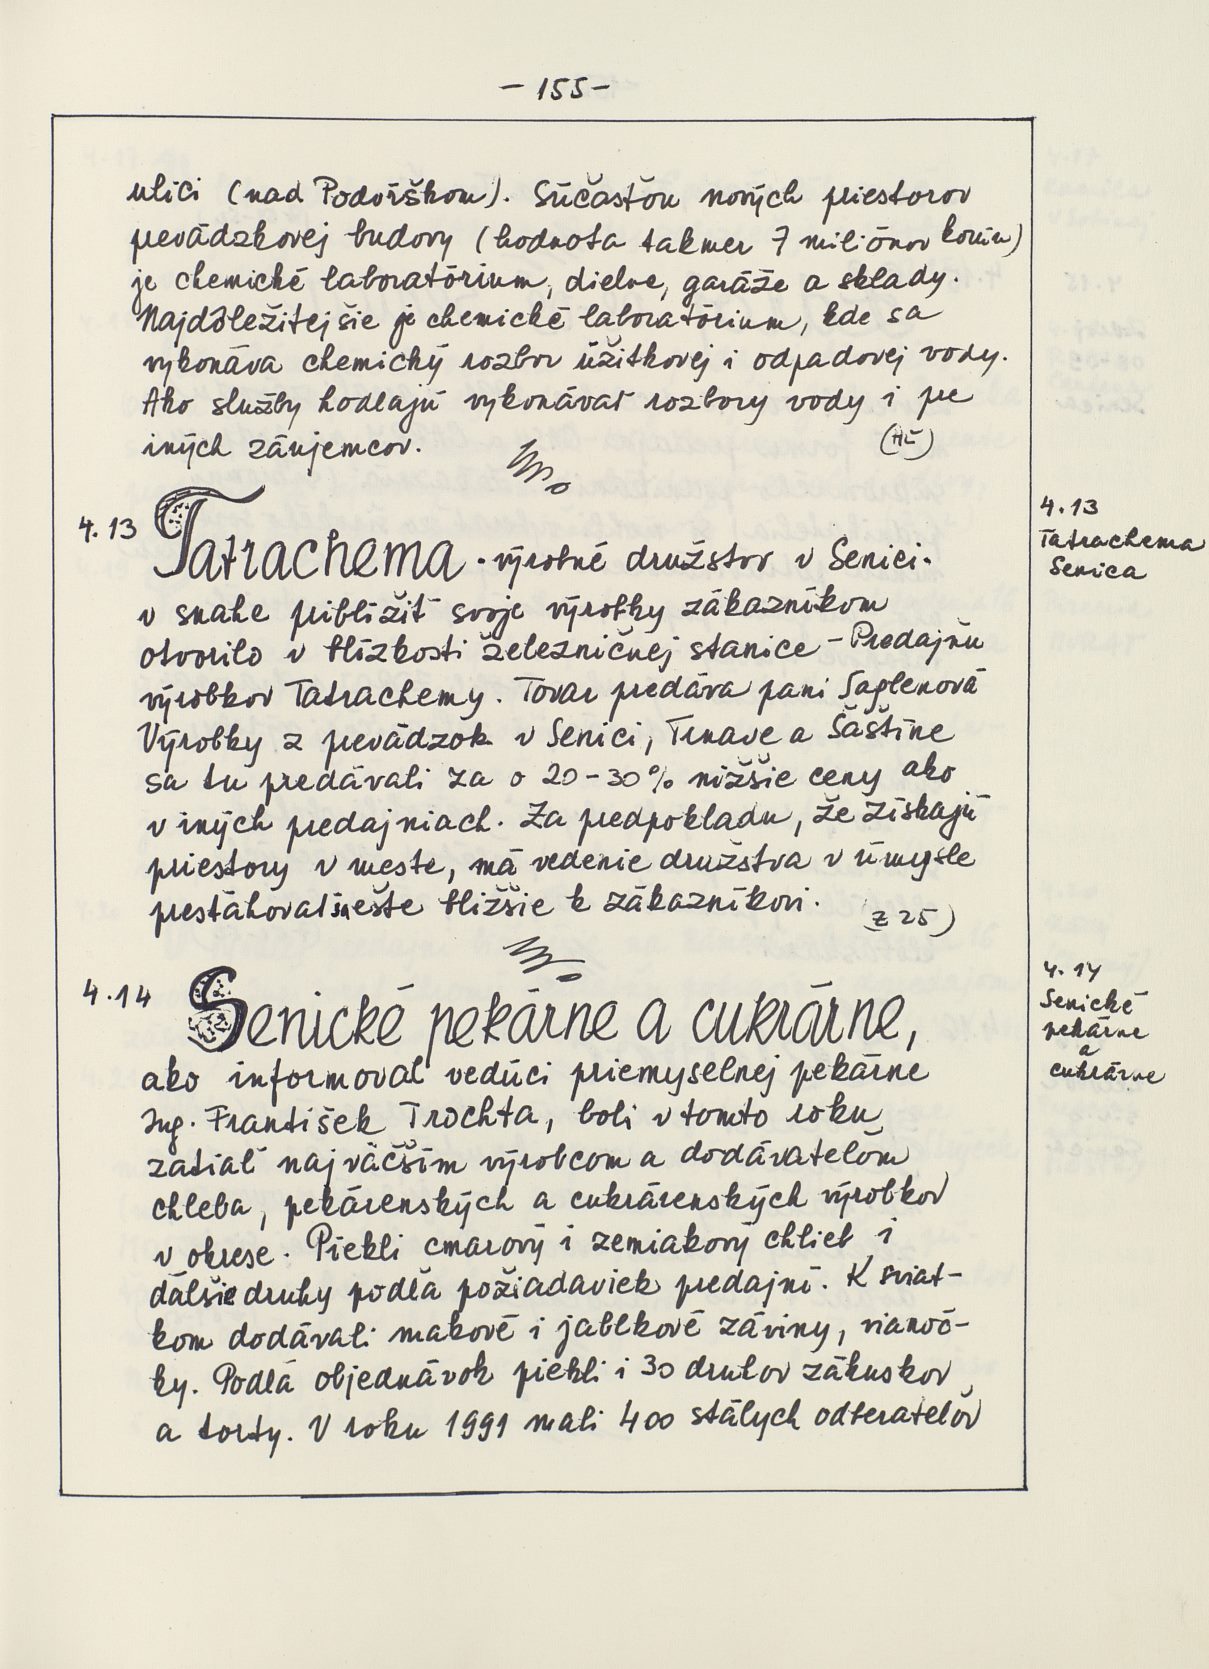 - 155 -
ulici (nad Podorškou). Súčasťou nových priestorov
prevádzkovej budovy (hodnota takmer 7 miliónov korún)
je chemické laboratórium, dielne, garáže a sklady.
Najdôležitejšie je chemické laboratórium, kde sa
vykonáva chemický rozbor úžitkovej i odpadovej vody.
Ako služby hodlajú vykonávať rozbory vody i pre
iných záujemcov.
4.13
4.13
Tatrachema
Senica
Tatrachema - výrobné družstvo v Senici.
v snahe priblížiť svoje výrobky zákazníkom
otvorilo v blízkosti železničnej stanice - Predajňu
výrobkov Tatrachemy. Tovar predáva pani Šaglenová
Výrobky z prevádzok v Senici, Trnave a Šaštíne
sa tu predávali za o 20-30% nižšie ceny ako
v iných predajniach. Za predpokladu, že získajú
priestory v meste, má vedenie družstva v úmysle
presťahovať sa ešte bližšie k zákazníkovi.
Z 25)
4.14
4.14
Senické
pekárne
a
cukrárne
Senické pekárne a cukrárne,
ako informoval vedúci priemyselnej pekárne
Ing. František Trochta, boli v tomto roku
zatiaľ najväčším výrobcom a dodávateľom
chleba, pekárenských a cukrárenských výrobkov
v okrese. Piekli cmarový i zemiakový chlieb i
ďalšie druhy podľa požiadaviek predajní. K sviat-
kom dodávali makové i jablkové záviny, vianoč-
ky. Podľa objednávok piekli i 30 druhov zákuskov
a torty. V roku 1991 mali 400 stálych odberateľov